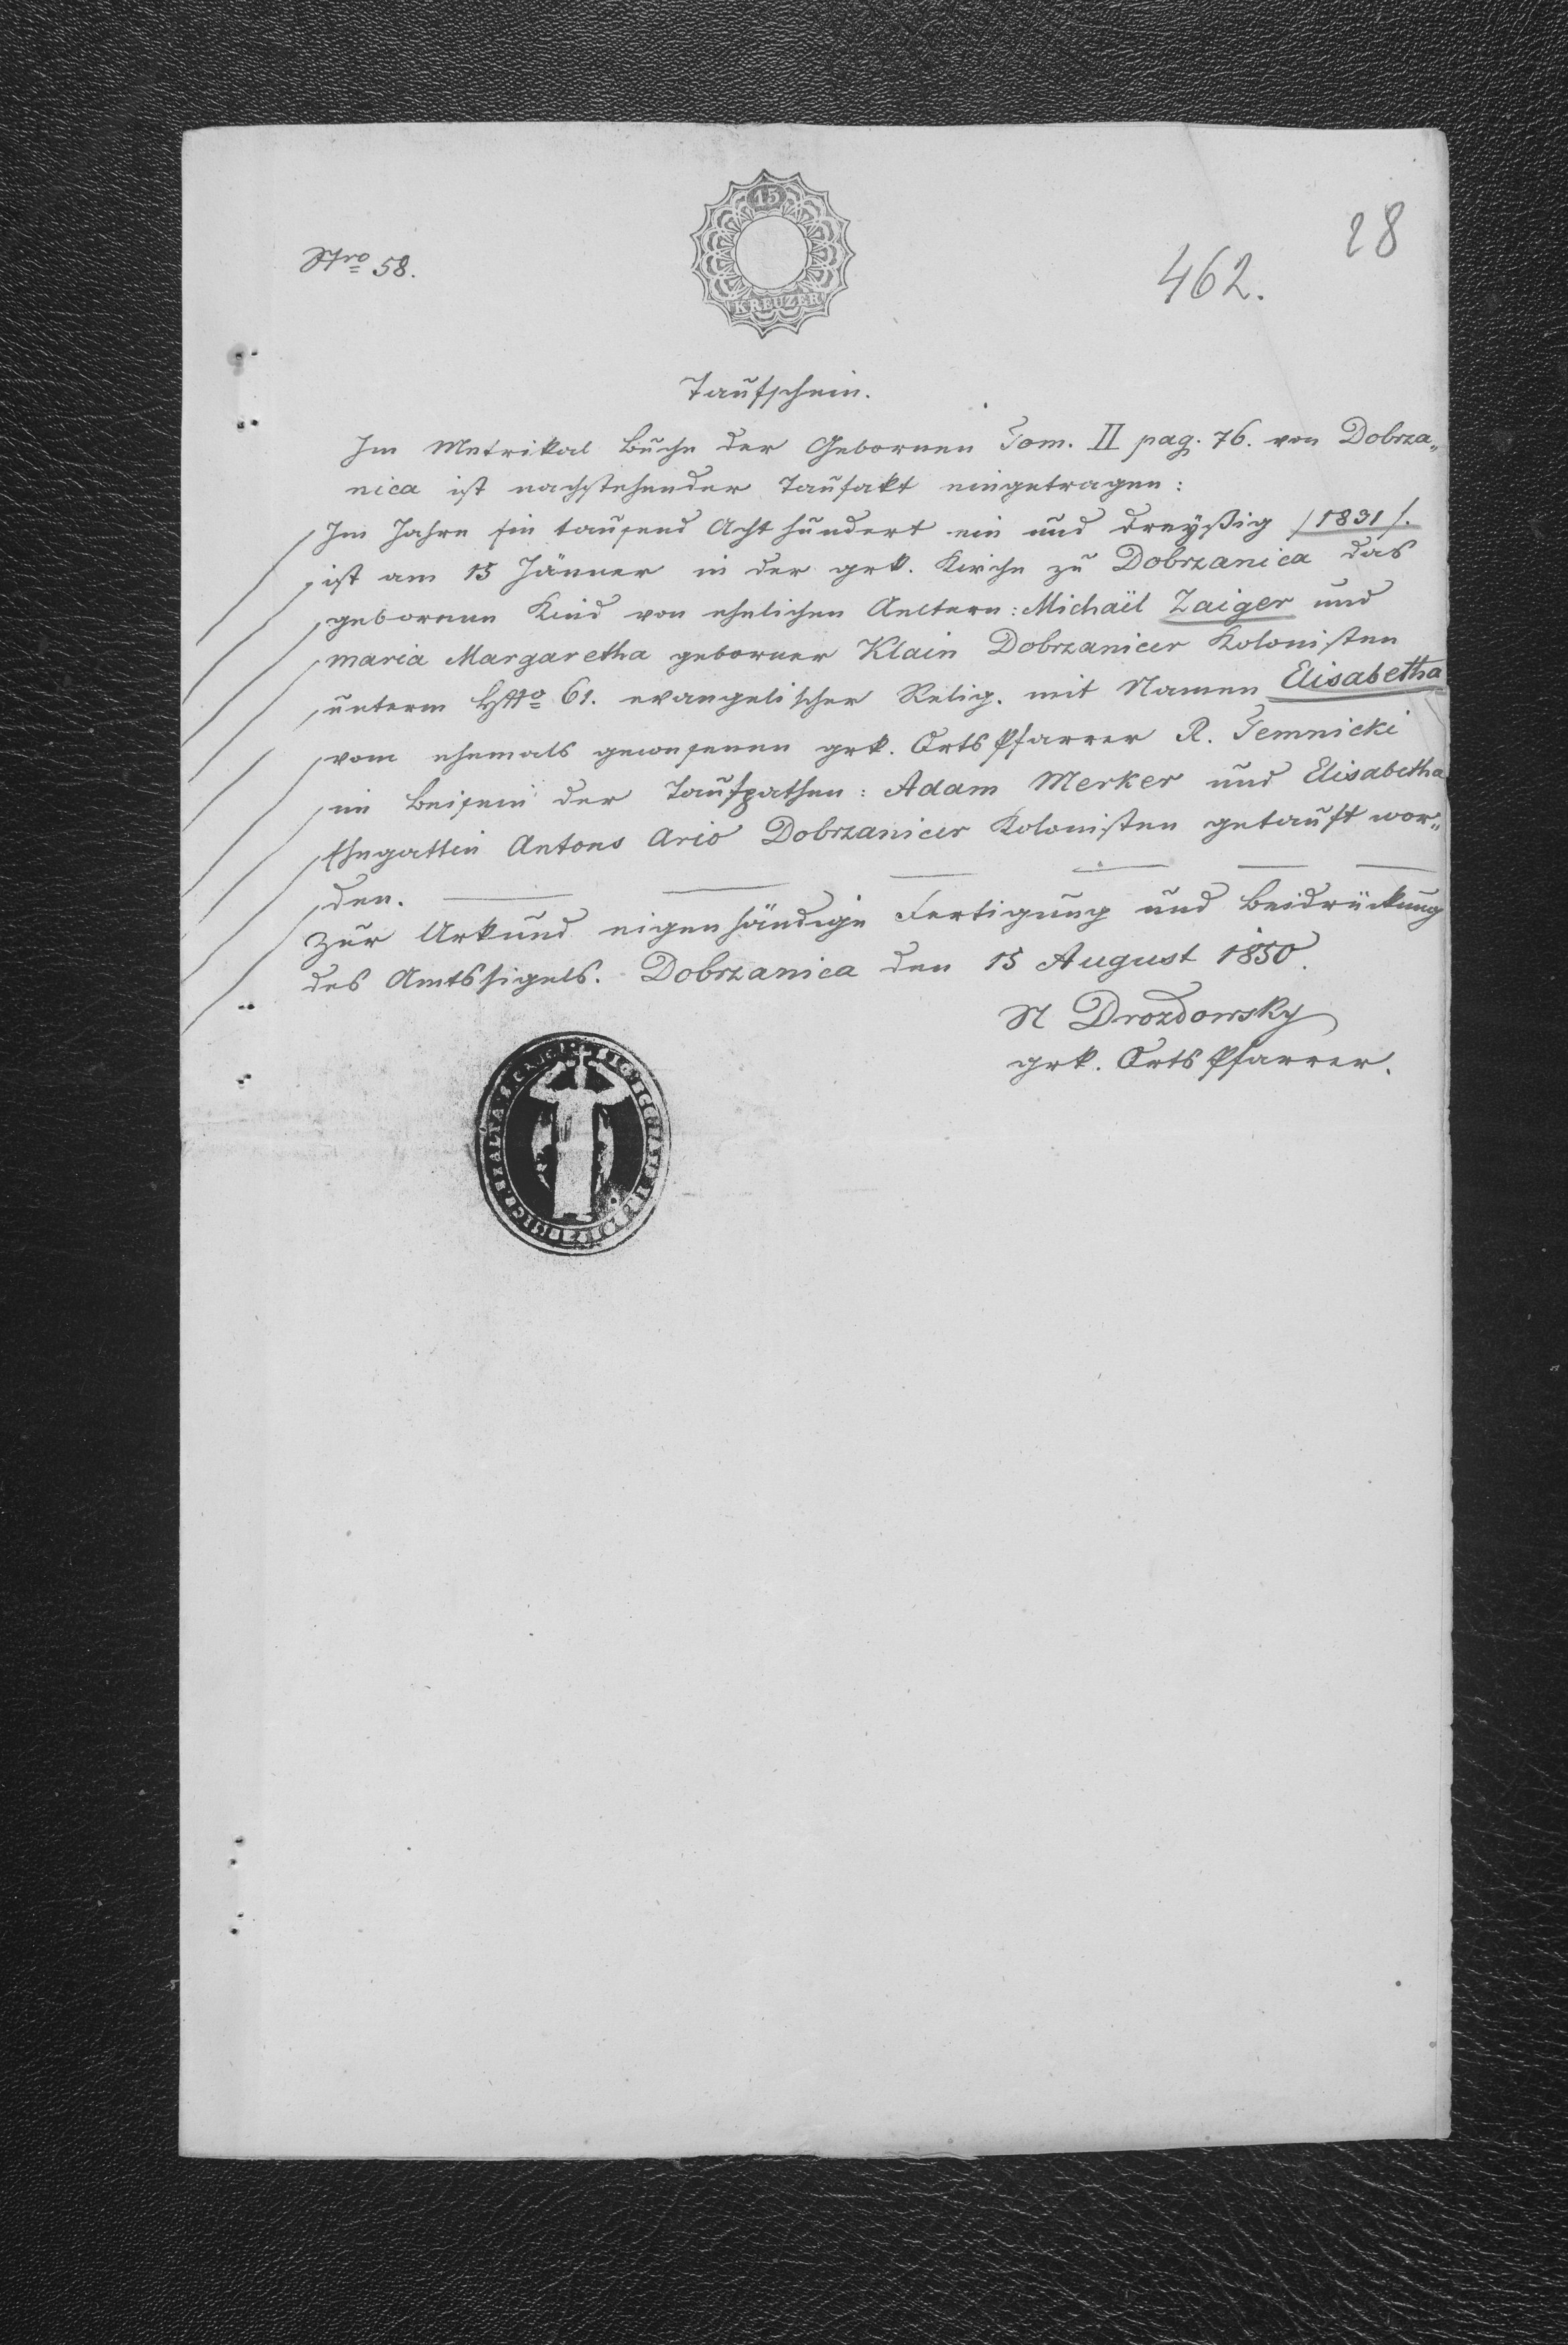 15
KREUZER
Nro 58.
462.
28
Taufschein.
Im Metrikal Buche der Gebornen Tom. II pag. 76. von Dobrza„
nica ist nachstehender Taufakt eingetragen:
Im Jahre Ein tausend Acht hundert ein und dreyßig /1831/.
ist am 15 Jänner in der grk. Kirche zu Dobrzanica das
geborene Kind von ehelichen Aeltern: Michaël Zaiger und
Maria Margaretha geborner Klain Dobrzanicer Kolonisten
unterm HNo 61. evangelischer Relig. mit Namen Elisabetha
vom ehemals gewesenen grk. Orts Pfarrer R. Temnicki
im Beisein der Taufpathen: Adam Merker und Elisabetha
Ehegattin Antons Ario Dobrzanicer Kolonisten getauft wor„
den.
Zur Urkund eigenhändige Fertigung und Beidrückung
des Amtssigels. Dobrzanica den 15 August 1850.
N Drozdowsky
grk. Orts Pfarrer.